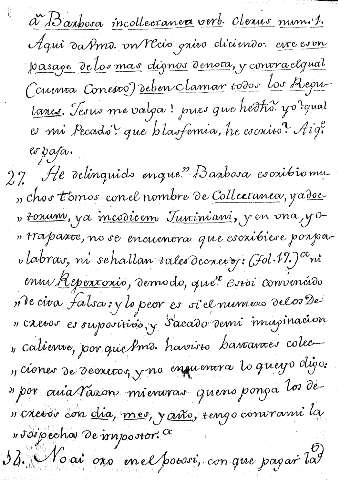 à Barbosa in collectanea verb. Clerus num. 1.
Aqui da Vmd. un recio grito diciendo: este es un
pasage de los mas dignos de nota, y contra el qual
(cuenta con esto) deben clamar todos los Regu-
lares. Jesus me valga! pues que he dho. yo? qual
es mi Pecado? que blasfemia, he escrito?
es pasa.
27. He delinquido en que Barbosa escribio mu-
" chos tomos con el nombre de Collectanea, ya doc-
" torum, ya in codicem Justiniani, y en una, y o-
" tra parte, no se encuentra que escribiese por pa-
" labras, ni se hallan tales decretos: (fol. 17.) ni
" en su Repertorio, de modo, que estoi convencido
" de cita falsa: y lo peor es si el numero de los De-
" cretos es supositicio, y sacado de mi imaginacion
" caliente, por que Vmd. ha visto bastantes colec-
" ciones de decretos, y no encuentra lo que yo digo:
" por cuia razon mientras que no ponga los de-
" cretos con dia, mes, y año, tengo contra mi la
" sospecha de impostor.
34. No ai oro en el potosi, con que pagar la